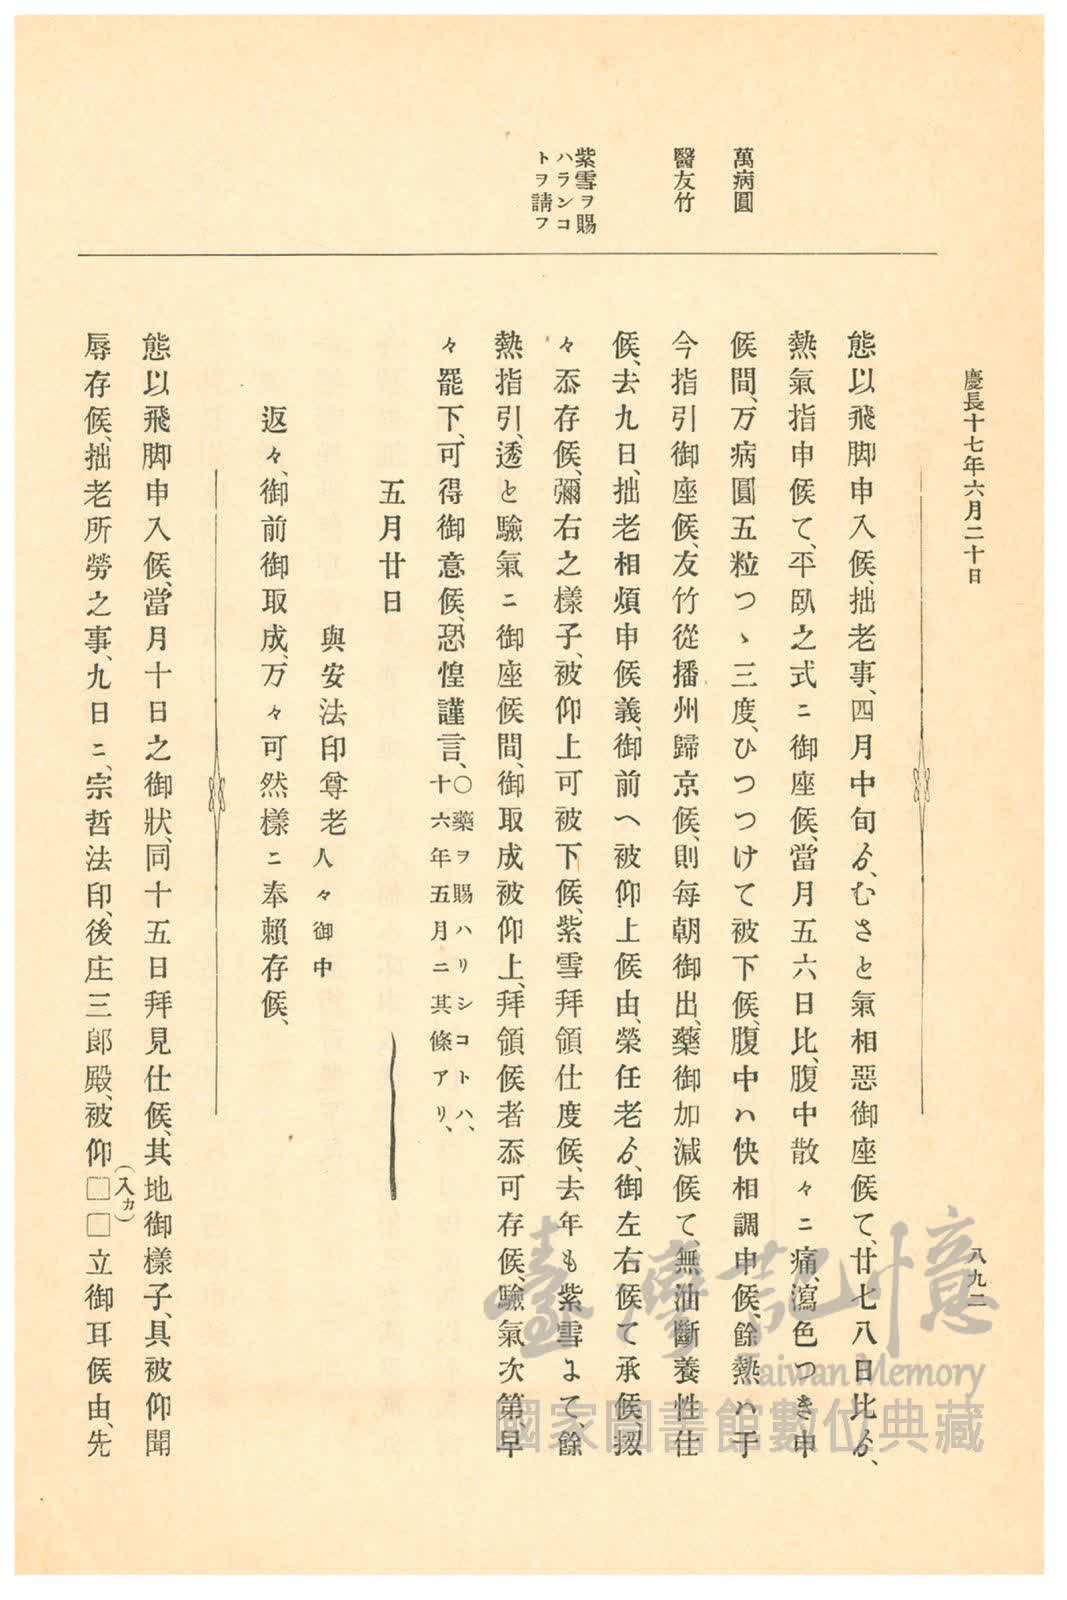 慶長十七年六月二十日
八九二
萬病圓
醫友竹
紫雪ヲ賜
ハランコ
トヲ請フ
態以飛脚申入候、拙老事、四月中旬ゟ、むさと氣相惡御座候て、廿七八日比ゟ、
熱氣指申候て、平臥之式ニ御座候、當月五六日比、腹中散々ニ痛、瀉色つき申
候間、万病圓五粒つゝ三度、ひつつけて被下候、腹中ハ快相調申候、餘熱ハ于
今指引御座候、友竹從播州歸京候、則每朝御出、藥御加減候て、無油斷養性仕
候、去九日、拙老相煩申候義、御前へ被仰上候由、榮任老ゟ、御左右候て承候、掇
々忝存候、彌右之樣子、被仰上可被下候、紫雪拜領仕度候、去年も紫雪よて、餘
熱指引、透と驗氣ニ御座候間、御取成被仰上、拜領候者忝可存候、驗氣次第、早
々罷下、可得御意候、恐惶謹言、
○藥ヲ賜ハリシコトハ、
十六年五月ニ其條アリ、
五月廿日
與安法印尊老人々御中
返々、御前御取成、万々可然樣ニ奉賴存候、
態以飛脚申入候、當月十日之御狀、同十五日拜見仕候、其地御樣子、具被仰聞
辱存候、拙老所勞之事、九日ニ、宗哲法印、後庄三郎殿、被仰□□(入カ)立御耳候由、先
臺灣記憶
Taiwan Memory
國家圖書館數位典藏